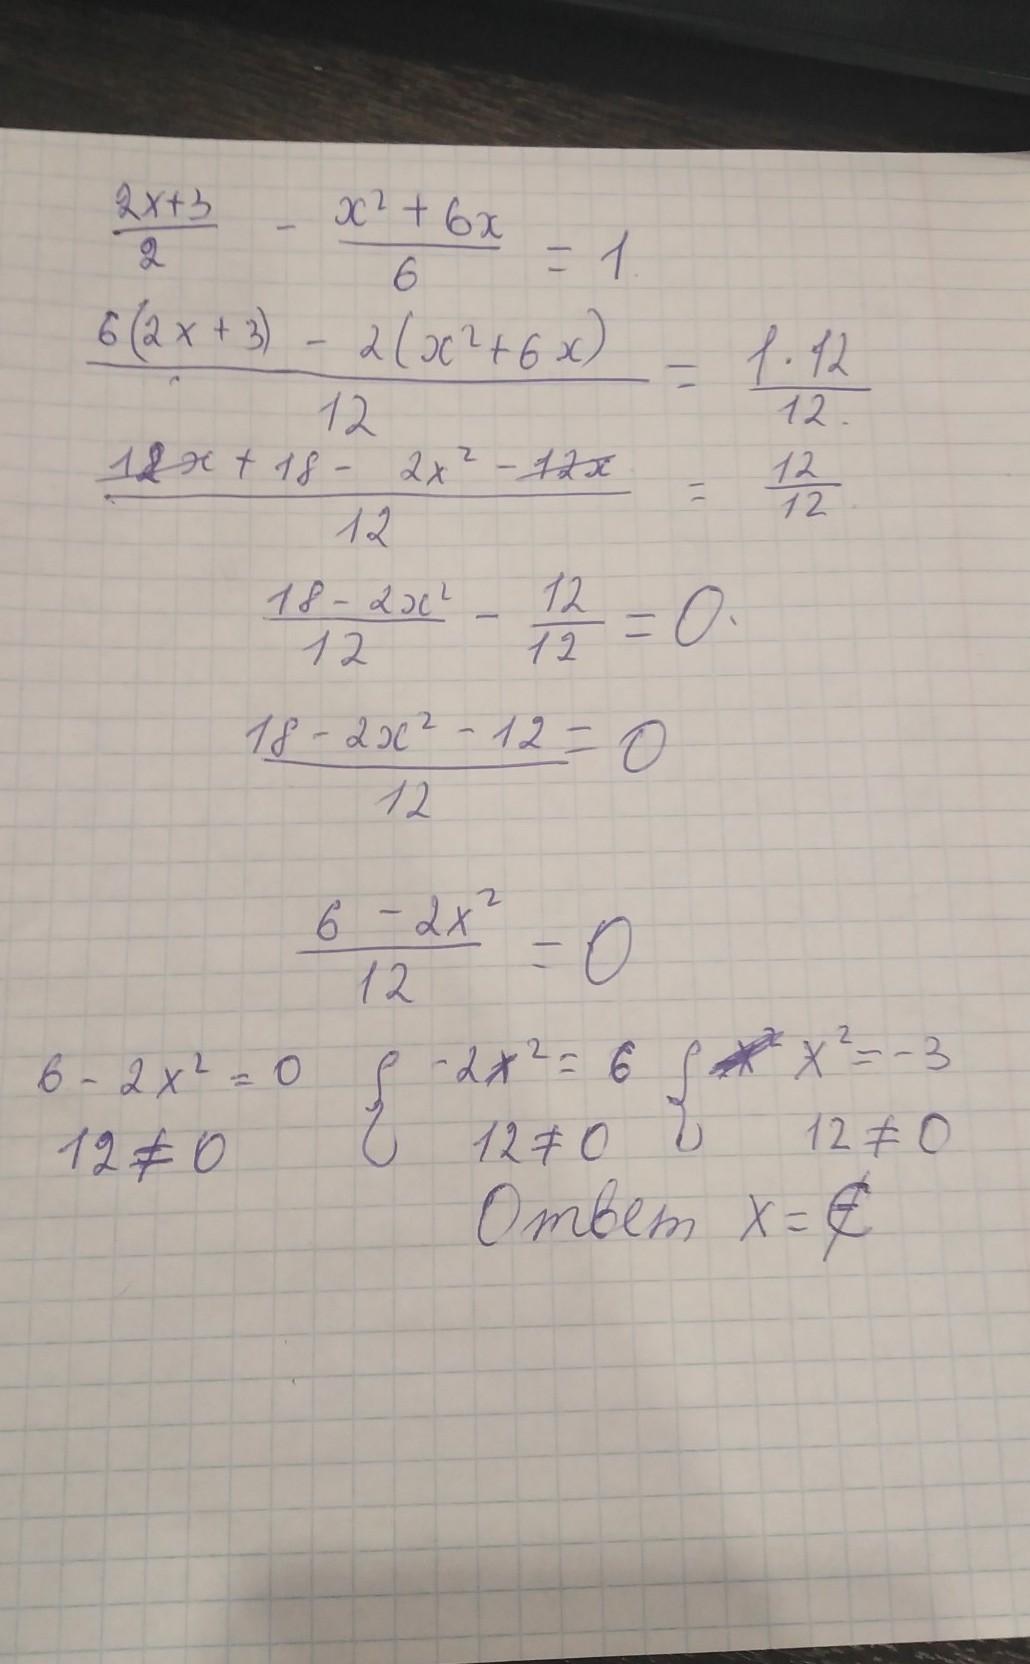 (2x+3)/2 - (x² + 6x)/6 = 1.
(6(2x+3) - 2(x²+6x))/12 = (1·12)/12.
(12x + 18 - 2x² - 12x)/12 = 12/12
(18 - 2x²)/12 - 12/12 = 0.
(18 - 2x² - 12)/12 = 0
(6 - 2x²)/12 = 0
6 - 2x² = 0 { -2x² = 6 { x² = -3
12 ≠ 0 12 ≠ 0 12 ≠ 0
Ответ x =